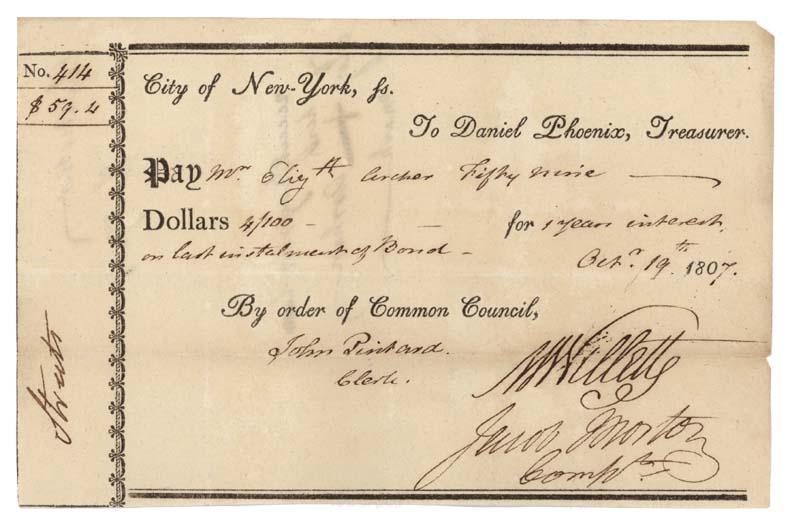 No. 414
$ 59.4
City of New-York, ſs.
To Daniel Phoenix, Treasurer.
Pay Mrs Elizth Archer Fifty nine
Dollars 4/100 - - for 1 years interest
on last instalment of Bond -
Octr. 19th. 1807.
By order of Common Council,
John Pintard.
Clerk.
M Willett
Jacob Morton
Compt
Streets